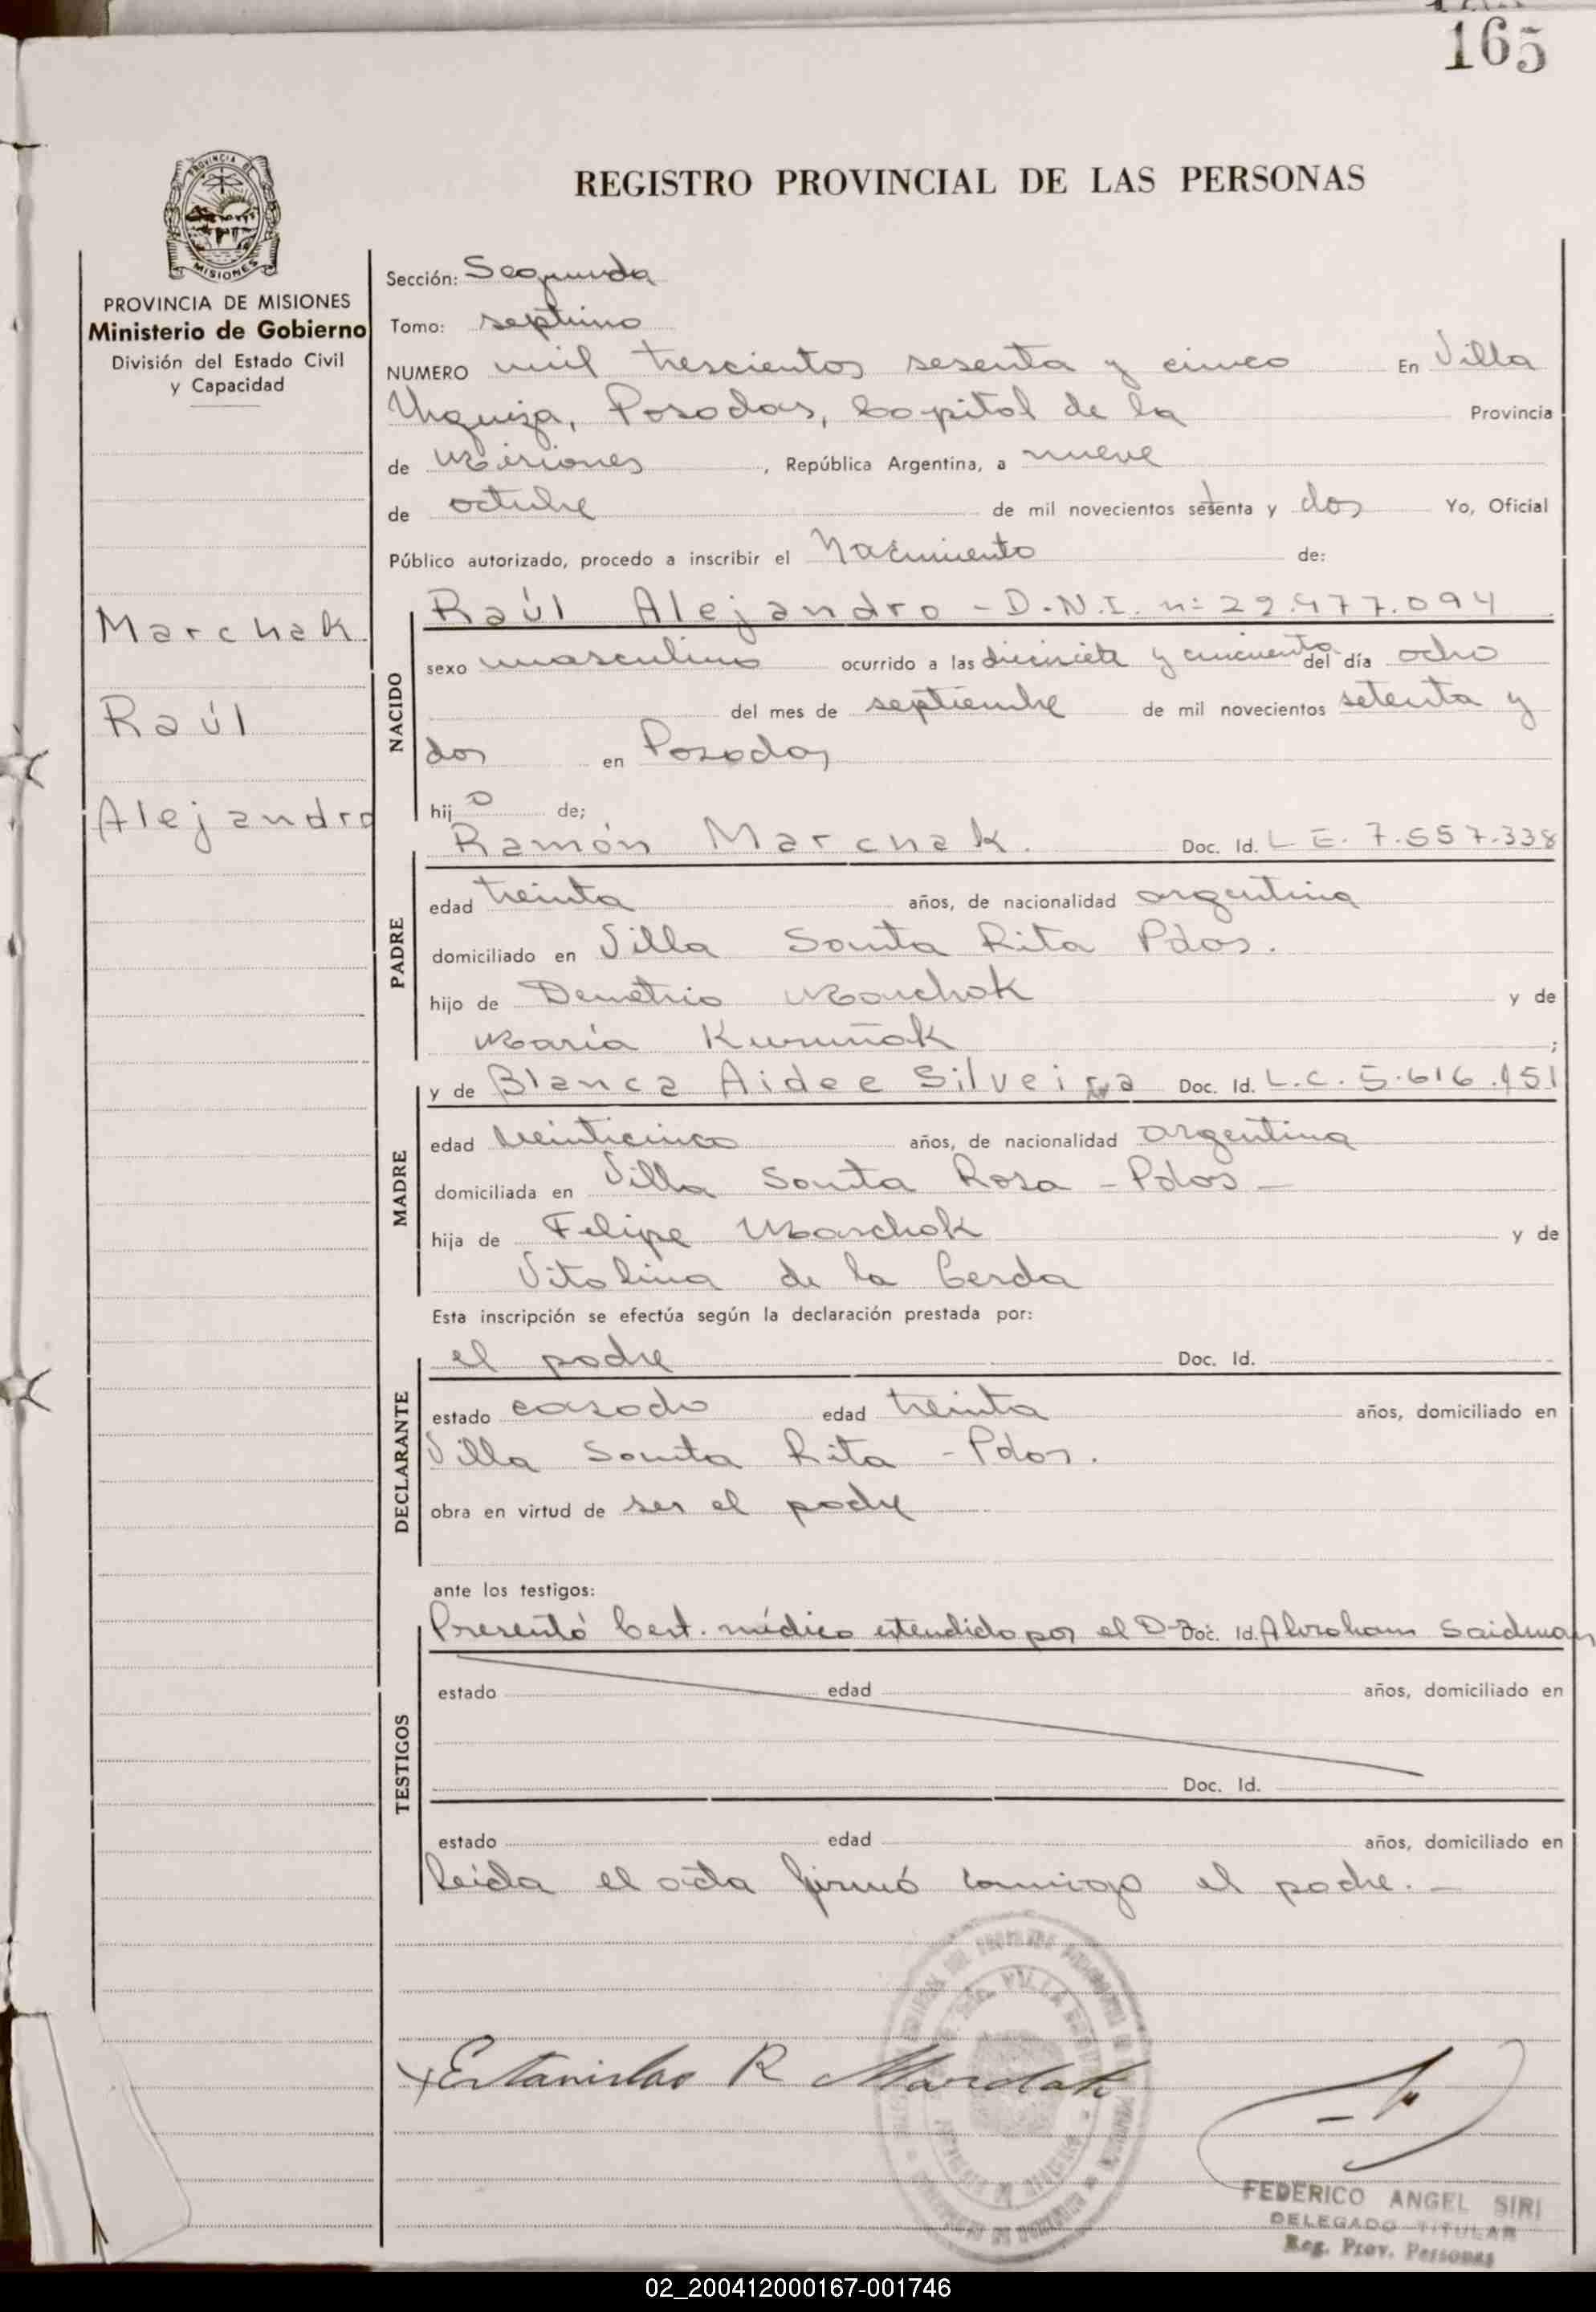 165
REGISTRO PROVINCIAL DE LAS PERSONAS
PROVINCIA DE
MISIONES
PROVINCIA DE MISIONES
Ministerio de Gobierno
División del Estado Civil
y Capacidad
Marchak
Raúl
Alejandro
Sección: Segunda
Tomo: septimo
NUMERO mil trescientos sesenta y cinco En Villa
Urquiza, Posadas, Capital de la Provincia
de Misiones, República Argentina, a nueve
de octubre de mil novecientos setenta y dos Yo, Oficial
Público autorizado, procedo a inscribir el Nacimiento de:
NACIDO
Raúl Alejandro - D.N.I. nº 22.477.094
sexo masculino ocurrido a las diecisiete y cincuenta del día ocho
del mes de septiembre de mil novecientos setenta y
dos en Posadas
hijo de;
PADRE
Ramón Marchak. Doc. Id. L E. 7.557.338
edad treinta años, de nacionalidad argentina
domiciliado en Villa Santa Rita Pdas.
hijo de Demetrio Marchak y de
María Kuruñak ;
MADRE
y de Blanca Aidee Silveira Doc. Id. L.C. 5.616.451
edad veinticinco años, de nacionalidad argentina
domiciliada en Villa Santa Rosa - Pdas -
hija de Felipe Marchak y de
Vitalina de la Cerda
Esta inscripción se efectúa según la declaración prestada por:
DECLARANTE
el padre Doc. Id.
estado casado edad treinta años, domiciliado en
Villa Santa Rita - Pdas.
obra en virtud de ser el padre
ante los testigos:
TESTIGOS
Presentó Cert. médico extendido por el Dr Doc. Id. Abraham Saidman
estado edad años, domiciliado en
Doc. Id.
estado edad años, domiciliado en
Leída el acta firmó conmigo el padre. -
Estanislao R Marchak
FEDERICO ANGEL SIRI
DELEGADO TITULAR
Reg. Prov. Personas
02_200412000167-001746